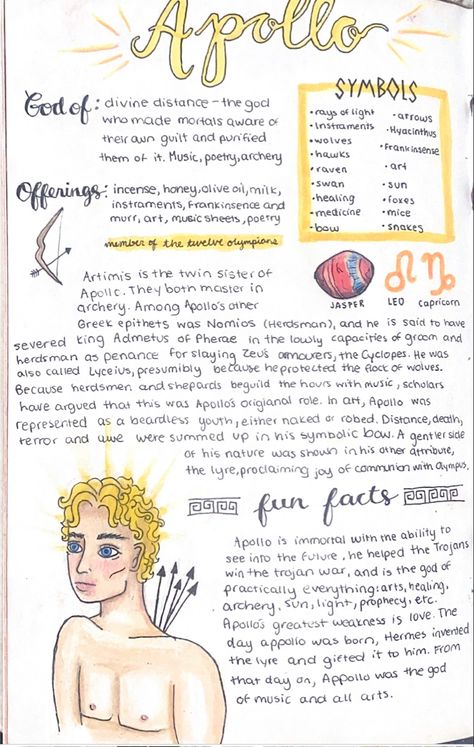 Apollo
God of: divine distance - the god
who made mortals aware of
their own guilt and purified
them of it. Music, poetry, archery
Offerings: incense, honey, olive oil, milk,
instruments, frankinsence and
murr, art, music sheets, poetry
member of the twelve olympians
SYMBOLS
• rays of light
• Instruments
• wolves
• hawks
• raven
• swan
• healing
• medicine
• bow
• arrows
• Hyacinthus
• Frankinsense
• art
• sun
• foxes
• mice
• snakes
JASPER
LEO
capricorn
Artimis is the twin sister of
Apollo. They both master in
archery. Among Apollo's other
Greek epithets was Nomios (Herdsman), and he is said to have
severed king Admetus of Pherae in the lowly capacities of groom and
herdsman as penance for slaying Zeus' armourers, the Cyclopes. He was
also called Lyceius, presumably because he protected the flock of wolves.
Because herdsmen and shepards beguild the hours with music, scholars
have argued that this was Apollo's origianal role. In art, Apollo was
represented as a beardless youth, either naked or robed. Distance, death,
terror and awe were summed up in his symbolic bow. A gentler side
of his nature was shown in his other attribute,
the lyre, proclaiming joy of communion with Olympus.
fun facts
Apollo is immortal with the ability to
see into the future, he helped the Trojans
win the trojan war, and is the god of
practically everything: arts, healing,
archery, sun, light, prophecy, etc.
Apollo's greatest weakness is love. The
day appollo was born, Hermes invented
the lyre and gifted it to him. From
that day on, Appollo was the god
of music and all arts.